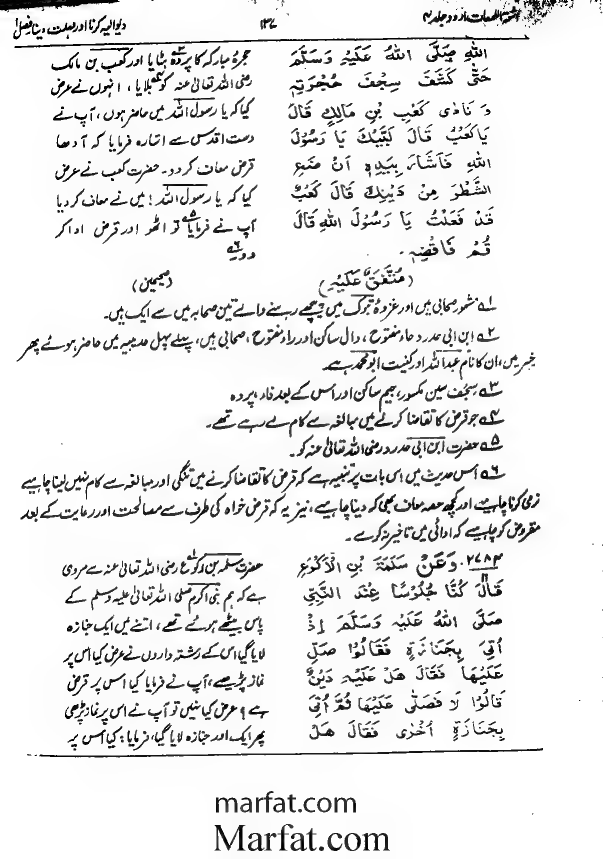 اشعۃ اللمعات اردو جلد ۴ ۱۳۷ دیوالیہ کرنا اور مہلت دینا فصل ۱
اللهِ صَلَّى اللهُ عَلَيْهِ وَسَلَّمَ
حَتّٰى كَشَفَ سِجْفَ حُجْرَتِهٖ
وَ نَادٰى كَعْبَ بْنَ مَالِكٍ قَالَ
يَا كَعْبُ قَالَ لَبَّيْكَ يَا رَسُوْلَ
اللهِ فَاَشَارَ بِيَدِهٖ اَنْ ضَعِ
الشَّطْرَ مِنْ دَيْنِكَ قَالَ كَعْبٌ
قَدْ فَعَلْتُ يَا رَسُوْلَ اللهِ قَالَ
قُمْ فَاقْضِهٖ۔
(مُتَّفَقٌ عَلَيْهِ)
حجرۂ مبارکہ کا پردہ ۳ ہٹایا اور کعب بن مالک
رضی اللہ تعالیٰ عنہ کو ۴ بلایا، انہوں نے عرض
کیا کہ یا رسول اللہ میں حاضر ہوں، آپ نے
دست اقدس سے اشارہ فرمایا کہ آدھا
قرض معاف کر دو۔ حضرت کعب نے عرض
کیا کہ یا رسول اللہ! میں نے معاف کر دیا
آپ نے فرمایا ۵ تو اٹھو اور قرض ادا کر
دو ۶
(صحیحین)
۱؎ مشہور صحابی ہیں اور غزوۂ تبوک میں پیچھے رہنے والے تین صحابہ میں سے ایک ہیں۔
۲؎ ابن ابی حدرد حاء مفتوح، دال ساکن اور راء مفتوح، صحابی ہیں، پہلے پہل حدیبیہ میں حاضر ہوئے پھر
خیبر میں، ان کا نام عبد اللہ اور کنیت ابو محمد ہے۔
۳؎ سِجف سین مکسور، جیم ساکن اور اس کے بعد فاء، پردہ
۴؎ جو قرض کا تقاضا کرنے میں مبالغہ سے کام لے رہے تھے۔
۵؎ حضرت ابن ابی حدرد رضی اللہ تعالیٰ عنہ کو۔
۶؎ اس حدیث میں اس بات پر تنبیہ ہے کہ قرض کا تقاضا کرنے میں تنگی اور مبالغہ سے کام نہیں لینا چاہیے
نرمی کرنا چاہیے اور کچھ حصہ معاف بھی کر دینا چاہیے، نیز یہ کہ قرض خواہ کی طرف سے مصالحت اور رعایت کے بعد
مقروض کو چاہیے کہ ادائی میں تاخیر نہ کرے۔
۲۷۸۳۔ وَعَنْ سَلَمَةَ بْنِ الْاَكْوَعِ
قَالَ كُنَّا جُلُوْسًا عِنْدَ النَّبِيِّ
صَلَّى اللهُ عَلَيْهِ وَسَلَّمَ اِذْ
اُتِيَ بِجَنَازَةٍ فَقَالُوْا صَلِّ
عَلَيْهَا فَقَالَ هَلْ عَلَيْهِ دَيْنٌ
قَالُوْا لَا فَصَلّٰى عَلَيْهَا ثُمَّ اُتِيَ
بِجَنَازَةٍ اُخْرٰى فَقَالَ هَلْ
حضرت سلمہ بن اکوع ۱ رضی اللہ تعالیٰ عنہ سے مروی
ہے کہ ہم نبی اکرم صلی اللہ تعالیٰ علیہ وسلم کے
پاس بیٹھے ہوئے تھے، اتنے میں ایک جنازہ
لایا گیا اس کے رشتہ داروں نے عرض کیا اس پر
نماز پڑھیے، آپ نے فرمایا کیا اس پر قرض
ہے؟ عرض کیا نہیں تو آپ نے اس پر نماز پڑھی
پھر ایک اور جنازہ لایا گیا، فرمایا: کیا اس پر
marfat.com
Marfat.com